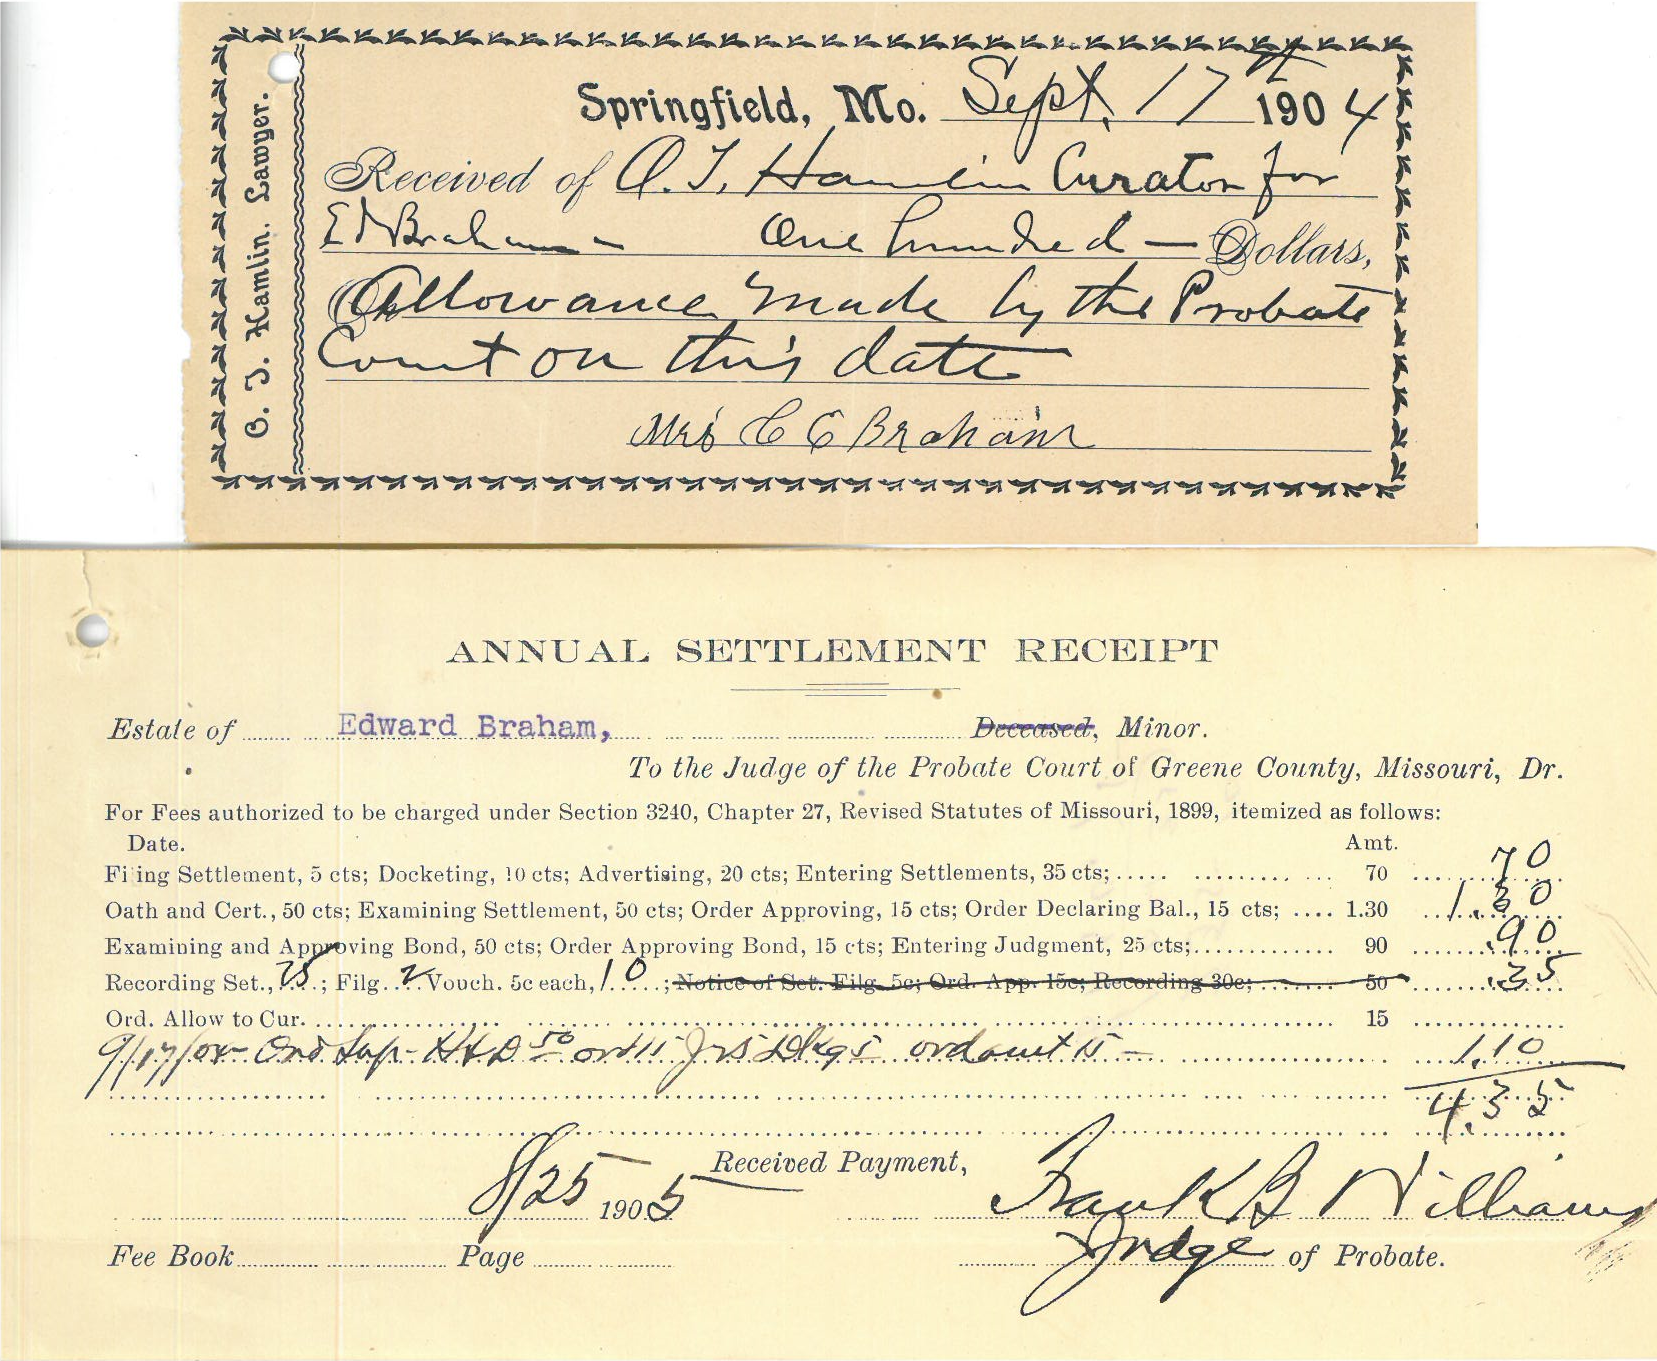 O. J. Hamlin. Lawyer.
Springfield, Mo. Sept. 17th 1904
Received of O. J. Hamlin Curator for
Ed Braham One hundred — Dollars,
Allowance made by the Probate
Court on this date
Mrs C E Braham
ANNUAL SETTLEMENT RECEIPT
Estate of Edward Braham, Deceased, Minor.
To the Judge of the Probate Court of Greene County, Missouri, Dr.
For Fees authorized to be charged under Section 3240, Chapter 27, Revised Statutes of Missouri, 1899, itemized as follows:
Date. Amt.
Filing Settlement, 5 cts; Docketing, 10 cts; Advertising, 20 cts; Entering Settlements, 35 cts; 70 70
Oath and Cert., 50 cts; Examining Settlement, 50 cts; Order Approving, 15 cts; Order Declaring Bal., 15 cts; 1.30 1.30
Examining and Approving Bond, 50 cts; Order Approving Bond, 15 cts; Entering Judgment, 25 cts; 90 .90
Recording Set., 25; Filg. 2 Vouch. 5c each, 10; Notice of Set. Filg. 5c; Ord. App. 15c; Recording 30c; 50 .35
Ord. Allow to Cur. 15
9/17/04 - 50 ord 15 ord 15 — 1.10
4.35
Received Payment,
8/25 1905 Frank B Williams
Fee Book Page Judge of Probate.